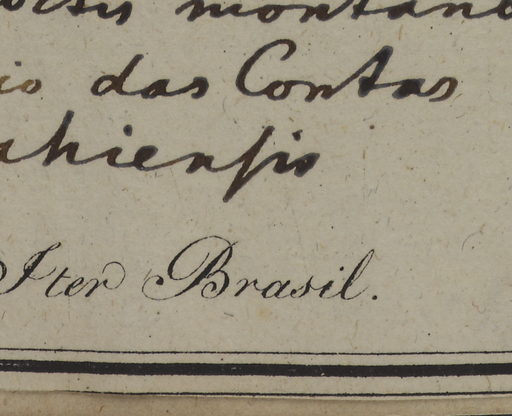 montan
io das Contas
ahiensis
Iter Brasil.